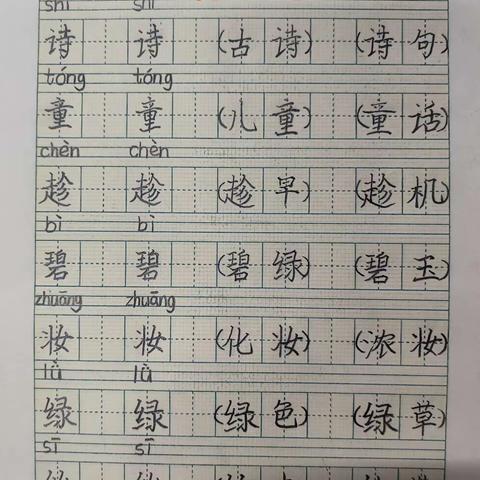 shī shī
诗 诗 (古诗) (诗句)
tóng tóng
童 童 (儿童) (童话)
chèn chèn
趁 趁 (趁早) (趁机)
bì bì
碧 碧 (碧绿) (碧玉)
zhuāng zhuāng
妆 妆 (化妆) (浓妆)
lǜ lǜ
绿 绿 (绿色) (绿草)
sī sī